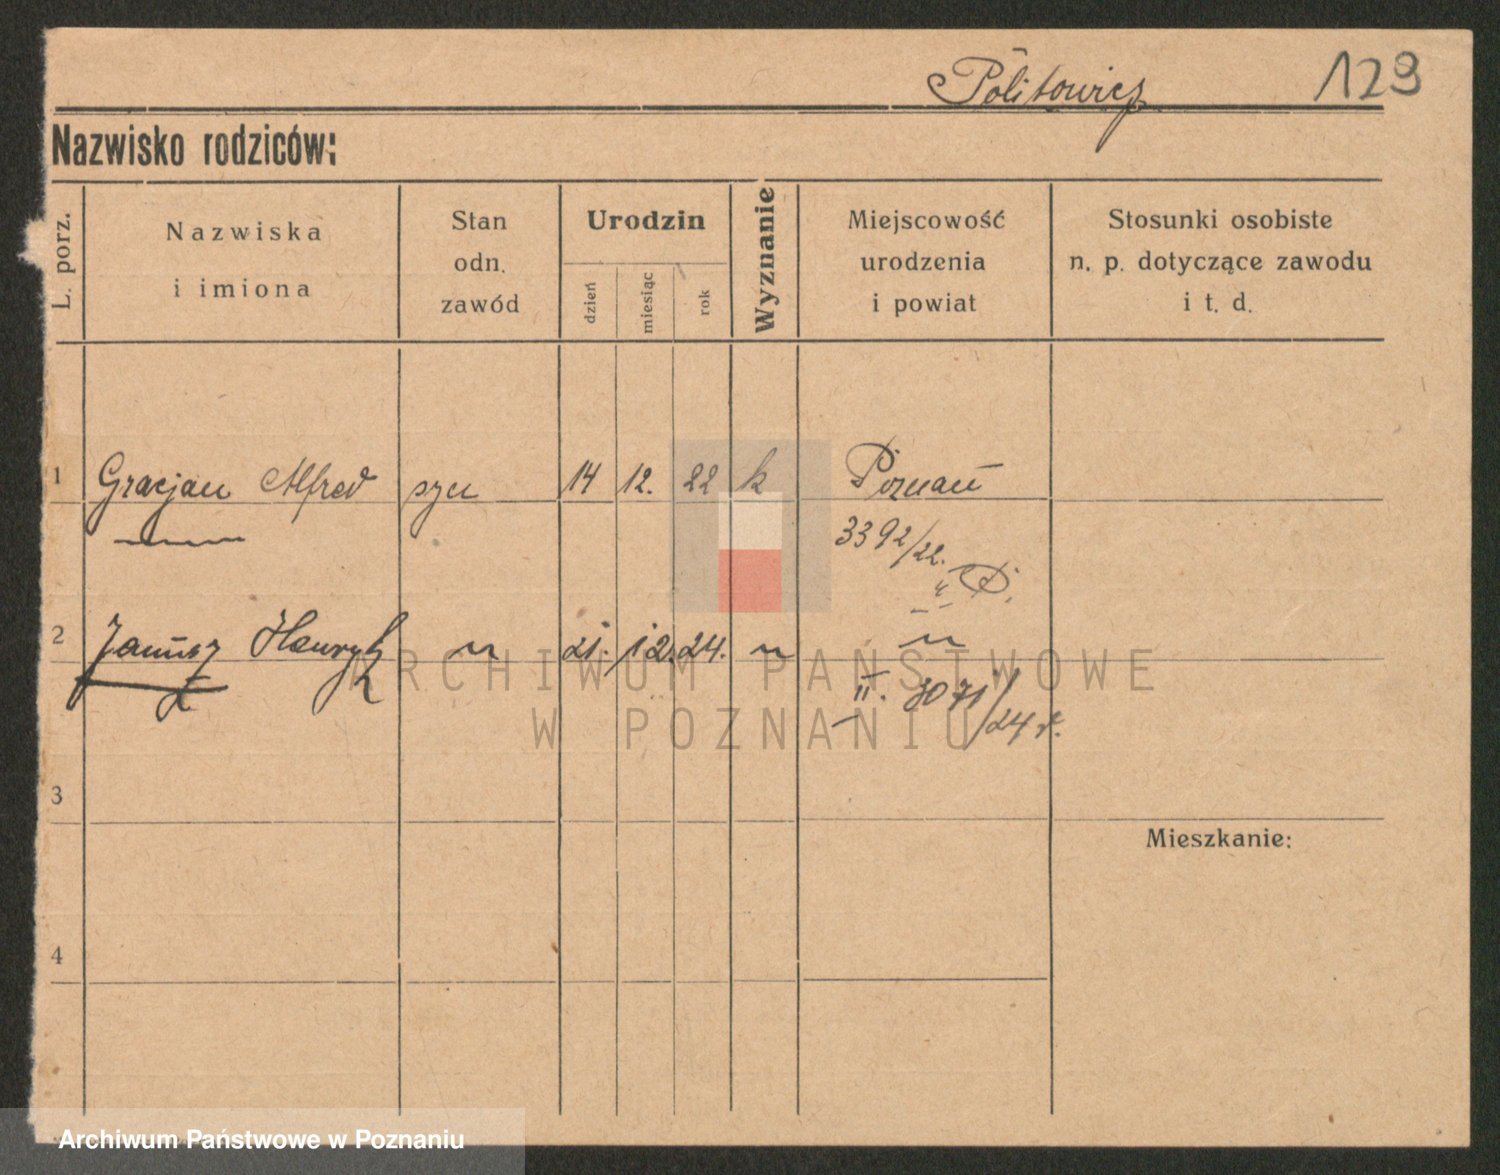 Politowicz 129
Nazwisko rodziców:
L. porz.
Nazwiska
i imiona
Stan
odn.
zawód
Urodzin
dzień
miesiąc
rok
Wyznanie
Miejscowość
urodzenia
i powiat
Stosunki osobiste
n. p. dotyczące zawodu
i t. d.
1 Gracjan Alfred syn 14 12. 22 k Poznań
3392/22.
2 Janusz Henryk " 21. 12. 24. " "
II. 3071/24 r.
ARCHIWUM PAŃSTWOWE
W POZNANIU
3
Mieszkanie:
4
Archiwum Państwowe w Poznaniu